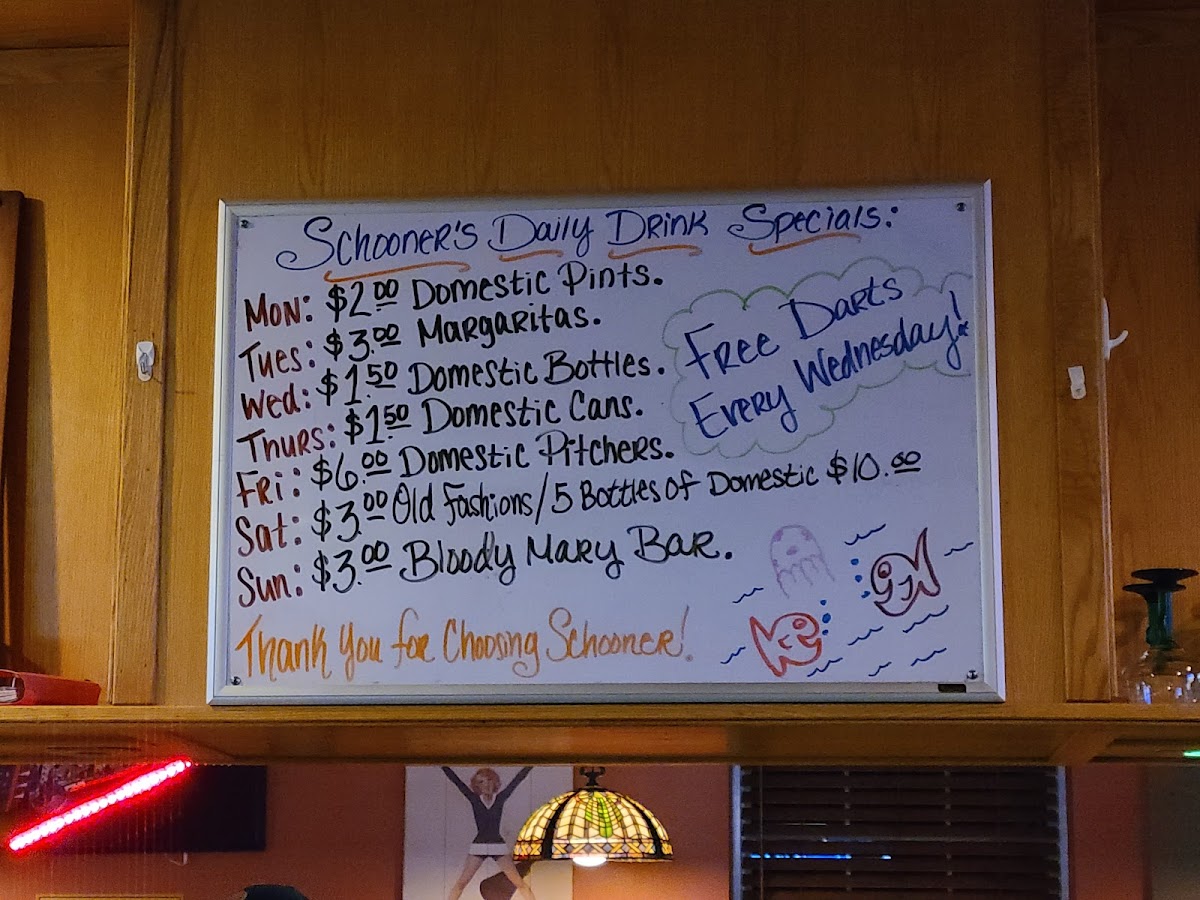 Schooner's Daily Drink Specials:
Mon: $2.00 Domestic Pints.
Tues: $3.00 Margaritas.
Wed: $1.50 Domestic Bottles.
Thurs: $1.50 Domestic Cans.
Fri: $6.00 Domestic Pitchers.
Sat: $3.00 Old Fashions/5 Bottles of Domestic $10.00
Sun: $3.00 Bloody Mary Bar.
Free Darts
Every Wednesday!
Thank You for Choosing Schooner!